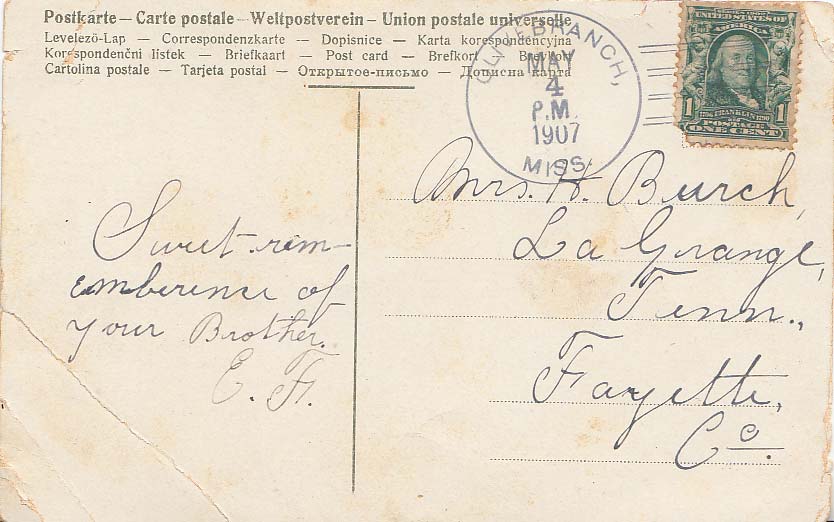 Postkarte – Carte postale – Weltpostverein – Union postale universelle
Levelezö-Lap — Correspondenzkarte — Dopisnice — Karta korespondencyjna
Korespondenční listek — Briefkaart — Post card — Brefkort — Brevkort
Cartolina postale — Tarjeta postal — Открытое-письмо — Дописна карта
OLIVEBRANCH,
MAY
4
P.M.
1907
MISS.
UNITED STATES OF
AMERICA
1706 FRANKLIN 1790
1 POSTAGE 1
ONE CENT
Mrs. H. Burch,
La Grange,
Tenn.,
Fayette,
Co.
Sweet rem-
emberence of
your Brother.
E. F.